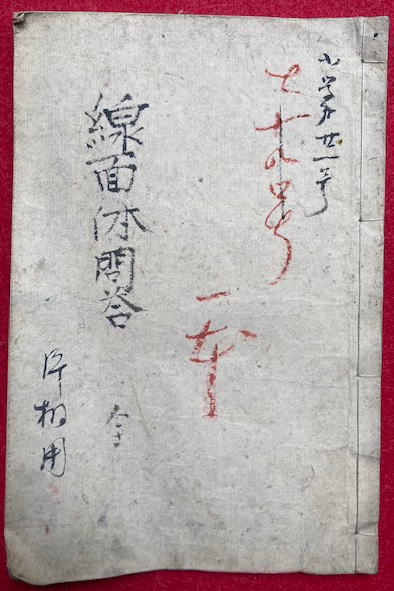 小学第廿一号
七十九号
一本
線面体問答
全
用